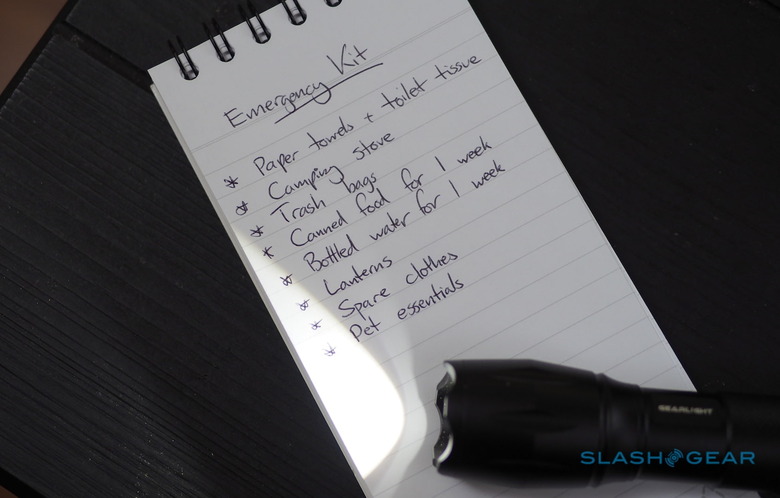 Emergency Kit
* Paper towels + toilet tissue
* Camping stove
* Trash bags
* Canned food for 1 week
* Bottled water for 1 week
* Lanterns
* Spare clothes
* Pet essentials
GEARLIGHT
SLASHGEAR